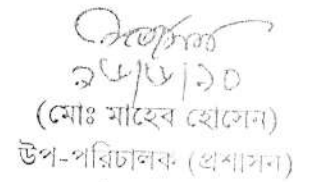 ২৮/৮/১০
(মোঃ মাহেব হোসেন)
উপ-পরিচালক (প্রশাসন)